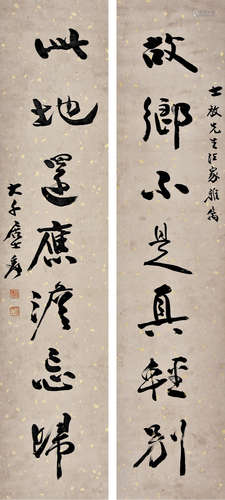 士放先生法家雅篇
故鄉不是真輕別
此地還應澹忘歸
大千居士爰